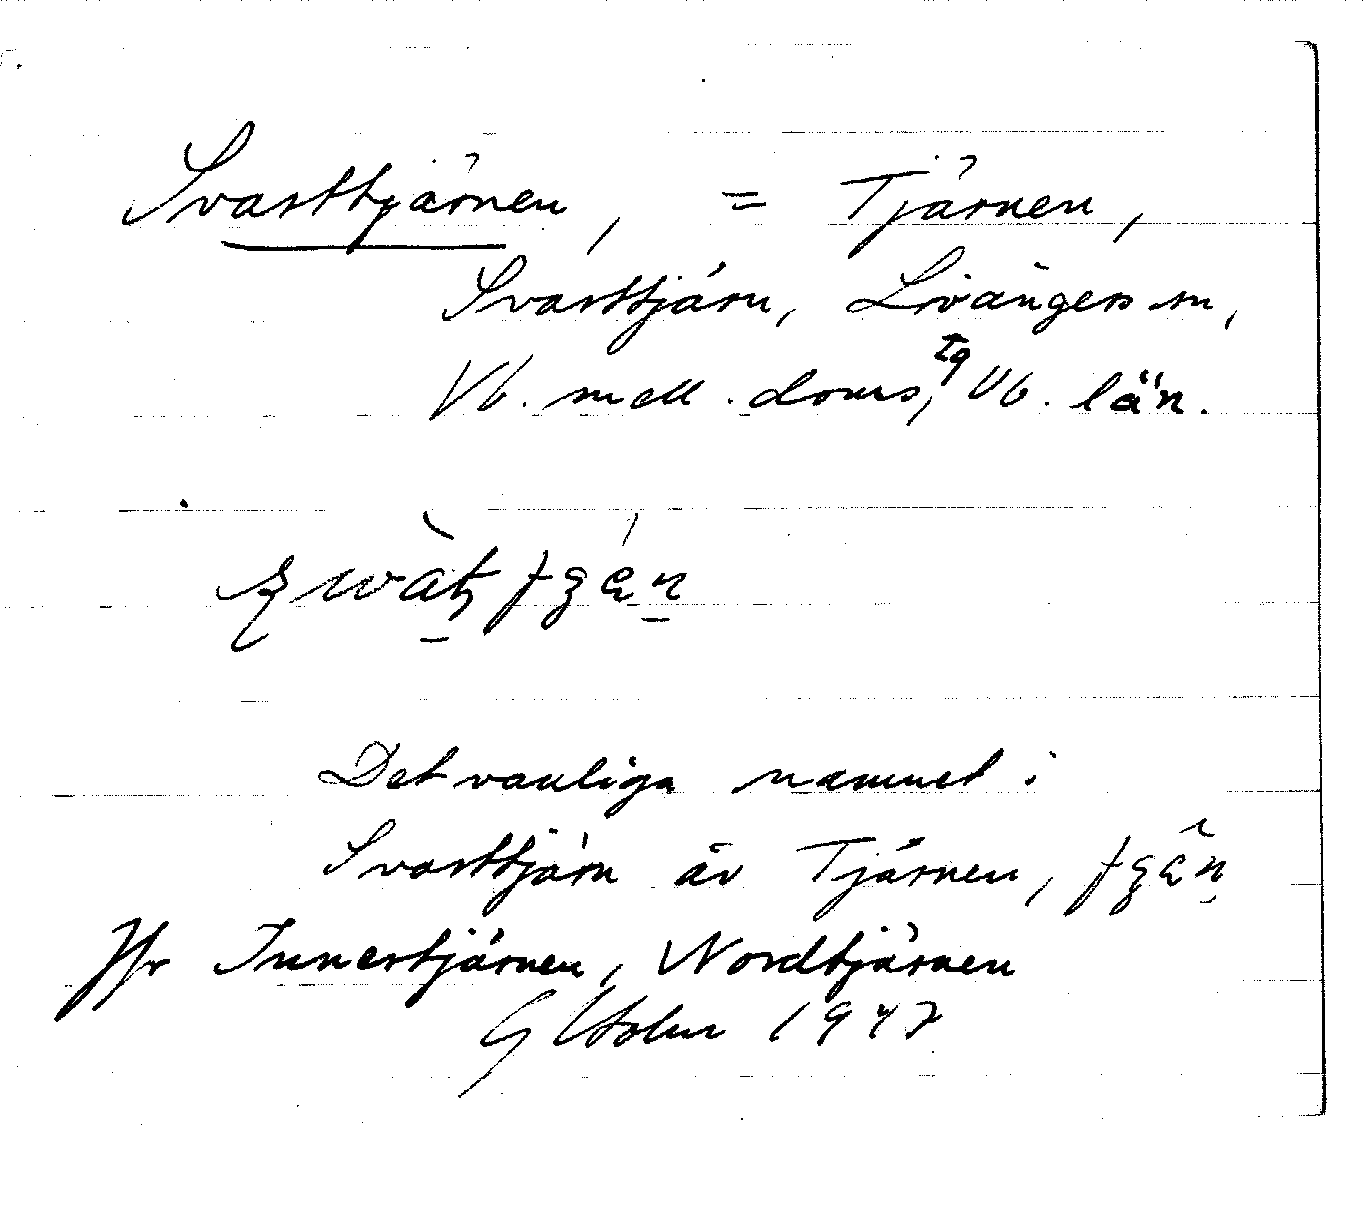 Svarttjärnen, = Tjärnen,
Svarttjärn, Lövångers sn,
Vb. mell. doms, tg Vb. län.
Det vanliga namnet i
Svarttjärn är Tjärnen,
Jfr Innertjärnen, Nordtjärnen
G Holm 1947